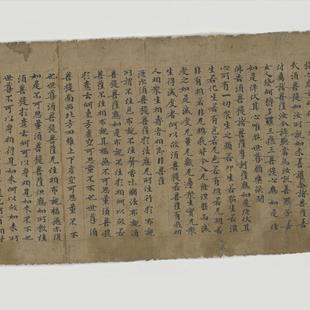 須菩提如汝所說如來善護念諸菩薩善
付囑諸菩薩汝今諦聽當為汝說善男子善
女人發阿耨多羅三藐三菩提心應如是住
如是降伏其心唯然世尊願樂欲聞
佛告須菩提諸菩薩摩訶薩應如是降伏其
心所有一切眾生之類若卵生若胎生若濕
生若化生若有色若無色若有想若無想若
非有想非無想我皆令入無餘涅槃而滅
度之如是滅度無量無數無邊眾生實無眾
生得滅度者何以故須菩提若菩薩有我相
人相眾生相壽者相即非菩薩
復次須菩提菩薩於法應無所住行於布施
所謂不住色布施不住聲香味觸法布施
須菩提菩薩應如是布施不住於相何以故若
菩薩不住相布施其福德不可思量須菩提
於意云何東方虛空可思量不不也世尊須
菩提南西北方四維上下虛空可思量不不
也世尊須菩提菩薩無住相布施福德亦復
如是不可思量須菩提菩薩但應如所教住
須菩提於意云何可以身相見如來不不也
世尊不可以身相得見如來何以故如來所